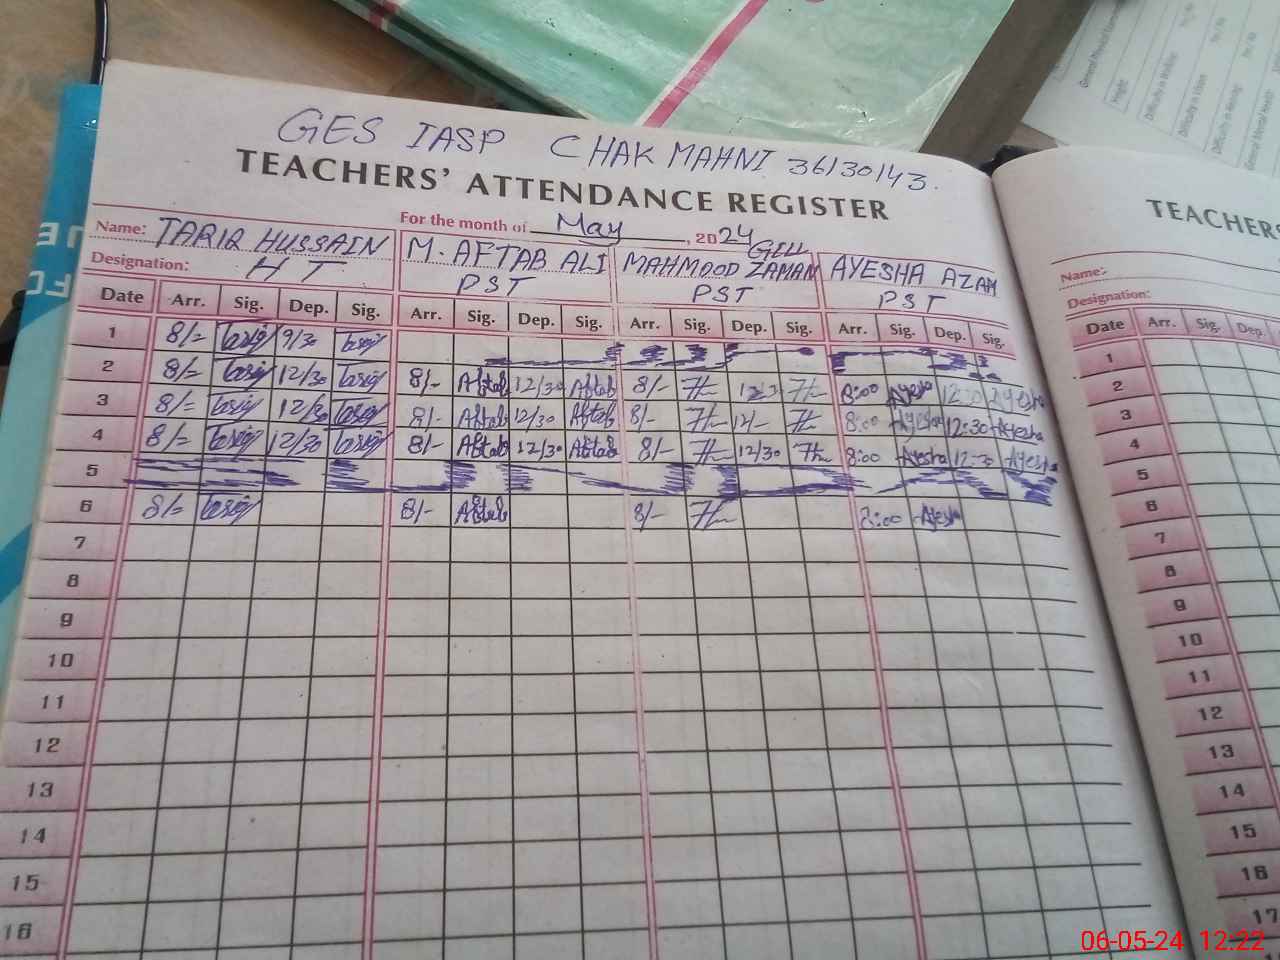 GES IASP CHAK MAHNI 36130143.
TEACHERS' ATTENDANCE REGISTER
For the month of May, 2024
Name: TARIQ HUSSAIN M. AFTAB ALI MAHMOOD ZAMAN GILL AYESHA AZAM
Designation: HT PST PST PST
Date Arr. Sig. Dep. Sig. Arr. Sig. Dep. Sig. Arr. Sig. Dep. Sig. Arr. Sig. Dep. Sig.
1 8/= Tariq 9/30 Tariq
2 8/= Tariq 12/30 Tariq 8/- Aftab 12/30 Aftab 8/- 8:00 Ayesha 12:30 Ayesha
3 8/= Tariq 12/30 Tariq 8/- Aftab 12/30 Aftab 8/- 12/- 8:00 Ayesha 12:30 Ayesha
4 8/= Tariq 12/30 Tariq 8/- Aftab 12/30 Aftab 8/- 12/30 8:00 Ayesha 12:30 Ayesha
5
6 8/= Tariq 8/- Aftab 8/- 8:00 Ayesha
7
8
9
10
11
12
13
14
15
16
TEACHERS'
Name:
Designation:
Date Arr. Sig. Dep.
1
2
3
4
5
6
7
8
9
10
11
12
13
14
15
16
17
General Physical
Height:
Difficulty in Walking:
Difficulty in Vision
Difficulty in Hearing:
General Mental Health:
06-05-24 12:22